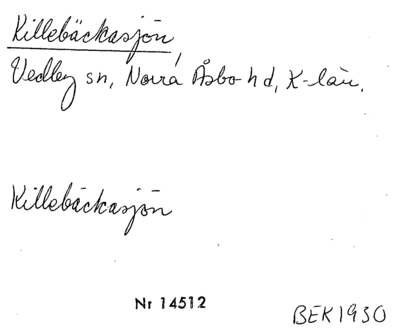 Killebäckasjön,
Vedby sn, Norra Åsbo hd, K-län.
Killebäckasjön
Nr 14512
BEK1930